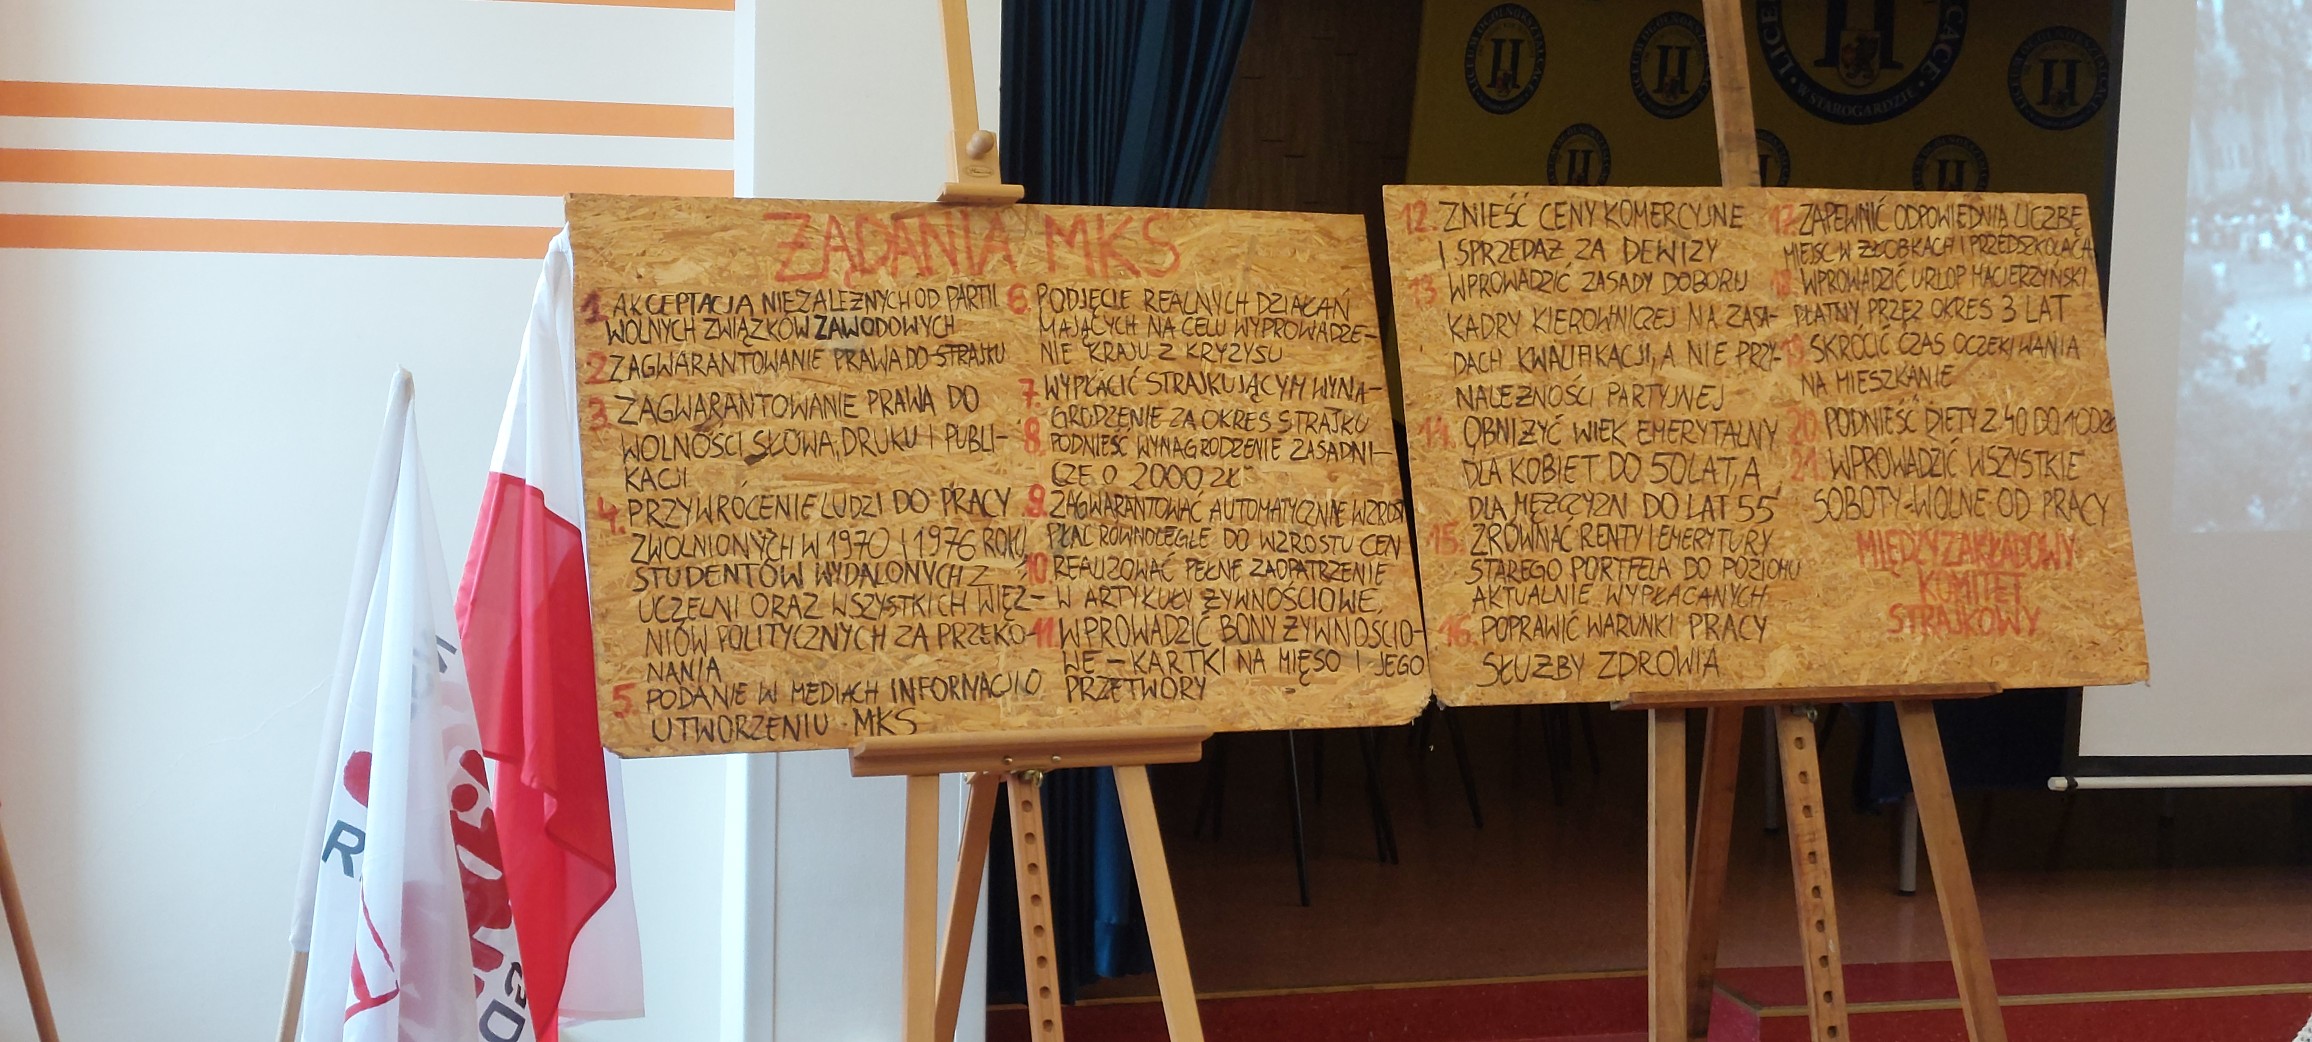 ŻĄDANIA MKS
1 AKCEPTACJA NIEZALEŻNYCH OD PARTII
WOLNYCH ZWIĄZKÓW ZAWODOWYCH
2 ZAGWARANTOWANIE PRAWA DO STRAJKU
3. ZAGWARANTOWANIE PRAWA DO
WOLNOŚCI SŁOWA, DRUKU I PUBLI-
KACJI
4. PRZYWRÓCENIE LUDZI DO PRACY
ZWOLNIONYCH W 1970 I 1976 ROKU,
STUDENTÓW WYDALONYCH Z
UCZELNI ORAZ WSZYSTKICH WIĘŹ-
NIÓW POLITYCZNYCH ZA PRZEKO-
NANIA
5. PODANIE W MEDIACH INFORMACJI O
UTWORZENIU MKS
6. PODJĘCIE REALNYCH DZIAŁAŃ
MAJĄCYCH NA CELU WYPROWADZE-
NIE KRAJU Z KRYZYSU
7. WYPŁACIĆ STRAJKUJĄCYM WYNA-
GRODZENIE ZA OKRES STRAJKU
8. PODNIEŚĆ WYNAGRODZENIE ZASADNI-
CZE O 2000 ZŁ
9. ZAGWARANTOWAĆ AUTOMATYCZNIE WZROST
PŁAC RÓWNOLEGLE DO WZROSTU CEN
10. REALIZOWAĆ PEŁNE ZAOPATRZENIE
W ARTYKUŁY ŻYWNOŚCIOWE,
11. WPROWADZIĆ BONY ŻYWNOŚCIO-
WE - KARTKI NA MIĘSO I JEGO
PRZETWORY
12. ZNIEŚĆ CENY KOMERCYJNE
I SPRZEDAŻ ZA DEWIZY
13 WPROWADZIĆ ZASADY DOBORU
KADRY KIEROWNICZEJ NA ZASA-
DACH KWALIFIKACJI, A NIE PRZY-
NALEŻNOŚCI PARTYJNEJ
14. OBNIŻYĆ WIEK EMERYTALNY
DLA KOBIET DO 50 LAT, A
DLA MĘŻCZYZN DO LAT 55
15. ZRÓWNAĆ RENTY I EMERYTURY
STAREGO PORTFELA DO POZIOMU
AKTUALNIE WYPŁACANYCH
16. POPRAWIĆ WARUNKI PRACY
SŁUŻBY ZDROWIA
17. ZAPEWNIĆ ODPOWIEDNIĄ LICZBĘ
MIEJSC W ŻŁOBKACH I PRZEDSZKOLACH
18. WPROWADZIĆ URLOP MACIERZYŃSKI
PŁATNY PRZEZ OKRES 3 LAT
19 SKRÓCIĆ CZAS OCZEKIWANIA
NA MIESZKANIE
20. PODNIEŚĆ DIETY Z 40 DO 100 ZŁ
21. WPROWADZIĆ WSZYSTKIE
SOBOTY-WOLNE OD PRACY
MIĘDZYZAKŁADOWY
KOMITET
STRAJKOWY
II
W STAROGARDZIE